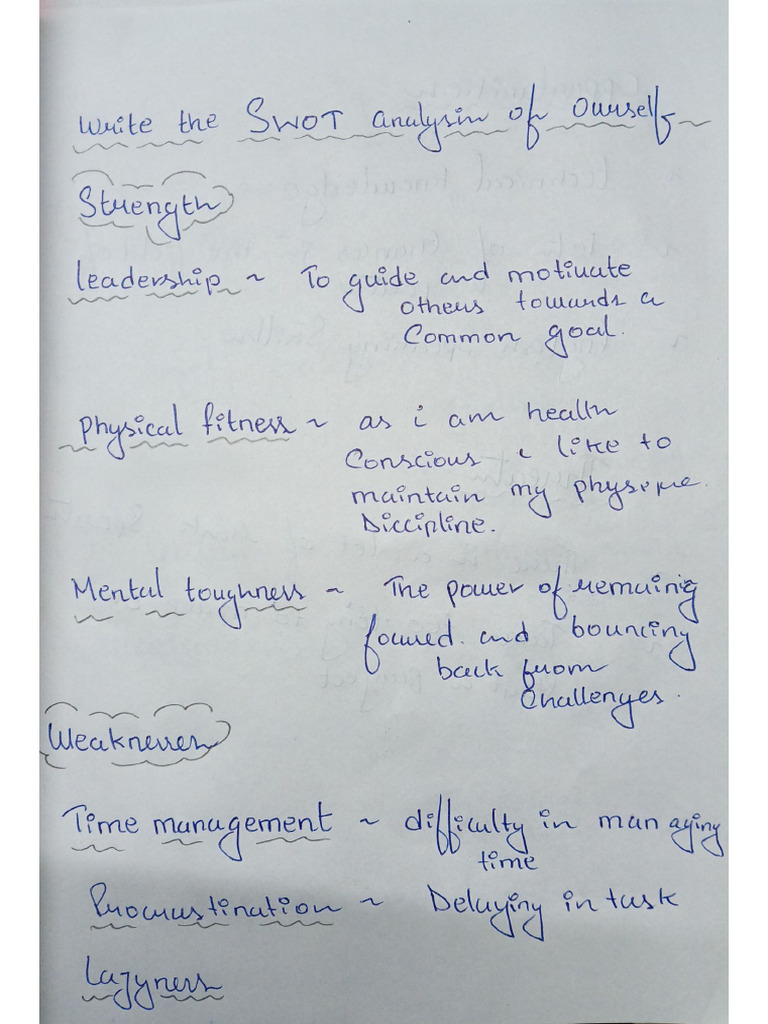 Write the SWOT analysis of Ourself
Strength
leadership ~ To guide and motivate
others towards a
Common goal.
Physical fitness ~ as i am health
Conscious i like to
maintain my physique.
Diccipline.
Mental toughness ~ The power of remaing
focused. and bouncing
back from
Challenges.
Weaknesses
Time management ~ difficulty in managing
time
Procrastination ~ Delaying in task
Lazyness